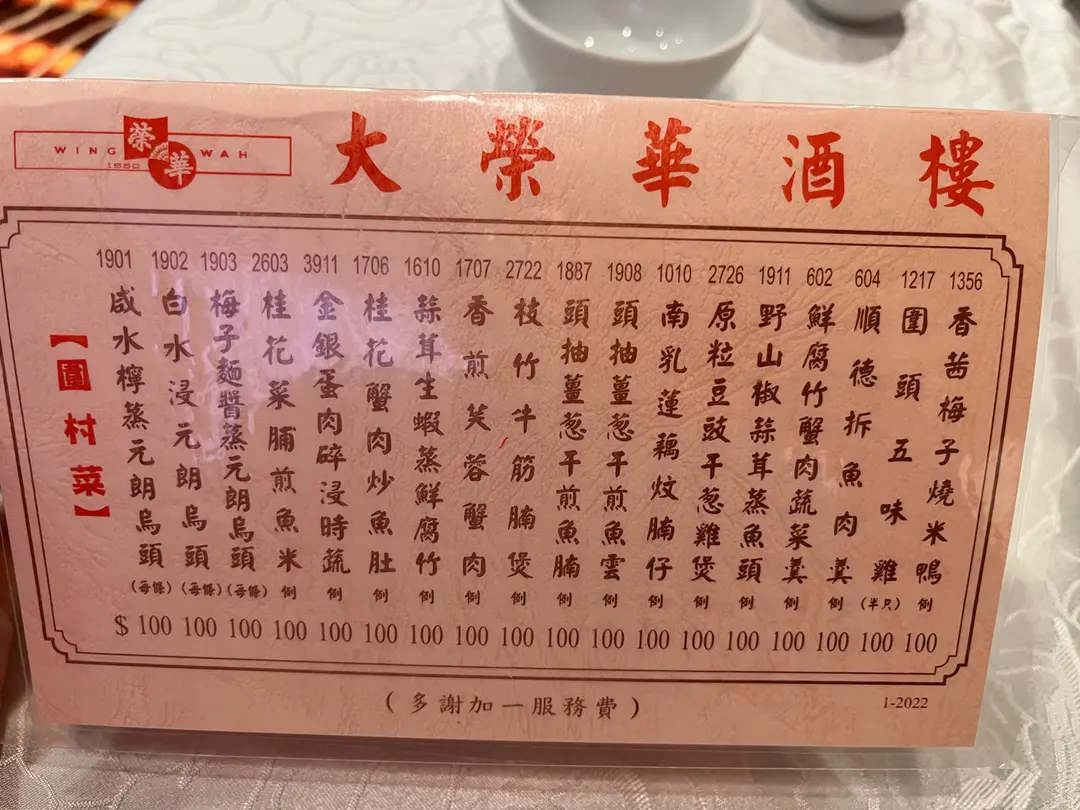 WING WAH
榮華
1950
大榮華酒樓
【圍村菜】
1901 1902 1903 2603 3911 1706 1610 1707 2722 1887 1908 1010 2726 1911 602 604 1217 1356
咸水檸蒸元朗烏頭
白水浸元朗烏頭
梅子麵醬蒸元朗烏頭
桂花菜脯煎魚米
金銀蛋肉碎浸時蔬
桂花蟹肉炒魚肚
蒜茸生蝦蒸鮮腐竹
香煎芙蓉蟹肉
枝竹牛筋腩煲
頭抽薑葱干煎魚腩
頭抽薑葱干煎魚雲
南乳蓮藕炆腩仔
原粒豆豉干葱雞煲
野山椒蒜茸蒸魚頭
鮮腐竹蟹肉蔬菜羹
順德拆魚肉羹
圍頭五味雞
香茜梅子燒米鴨
(每條) (每條) (每條) 例 例 例 例 例 例 例 例 例 例 例 例 例 (半只) 例
$ 100 100 100 100 100 100 100 100 100 100 100 100 100 100 100 100 100 100
(多謝加一服務費)
1-2022